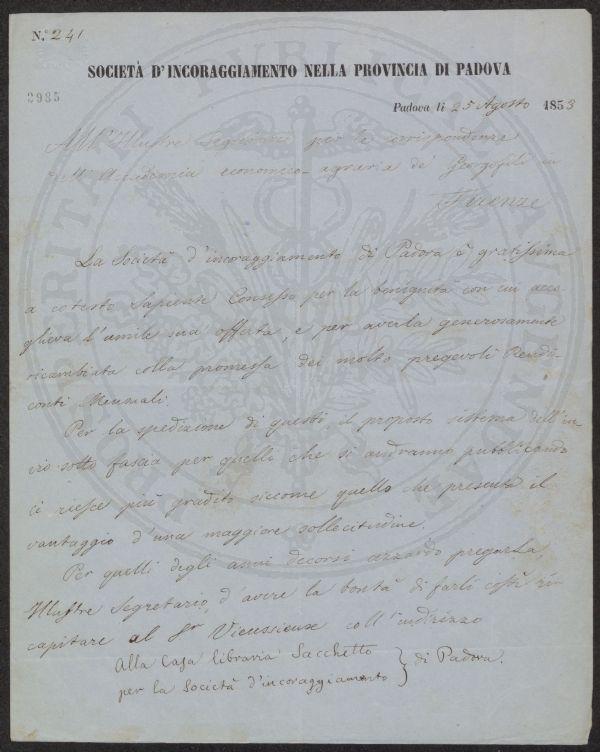 N.° 241
SOCIETÀ D'INCORAGGIAMENTO NELLA PROVINCIA DI PADOVA
2985
Padova li 25 Agosto 1853
All'Illustre Segretario per le corrispondenze
dell'Accademia economico-agraria de' Georgofili in
Firenze
La Società d'incoraggiamento di Padova è gratissima
a cotesto Sapiente Consesso per la benignità con cui acco-
glieva l'umile sua offerta, e per averla generosamente
ricambiata colla promessa dei molto pregevoli Rendi-
conti Mensuali.
Per la spedizione di questi, il proposto sistema dell'in-
vio sotto fascia per quelli che si andranno pubblicando
ci riesce più gradito siccome quello che presenta il
vantaggio d'una maggiore sollecitudine.
Per quelli degli anni decorsi azzardo pregarLa,
Illustre Segretario, d'avere la bontà di farli costì ri-
capitare al Sr Vieussieux coll'indirizzo
Alla Casa libraria Sacchetto
per la Società d'incoraggiamento } di Padova.